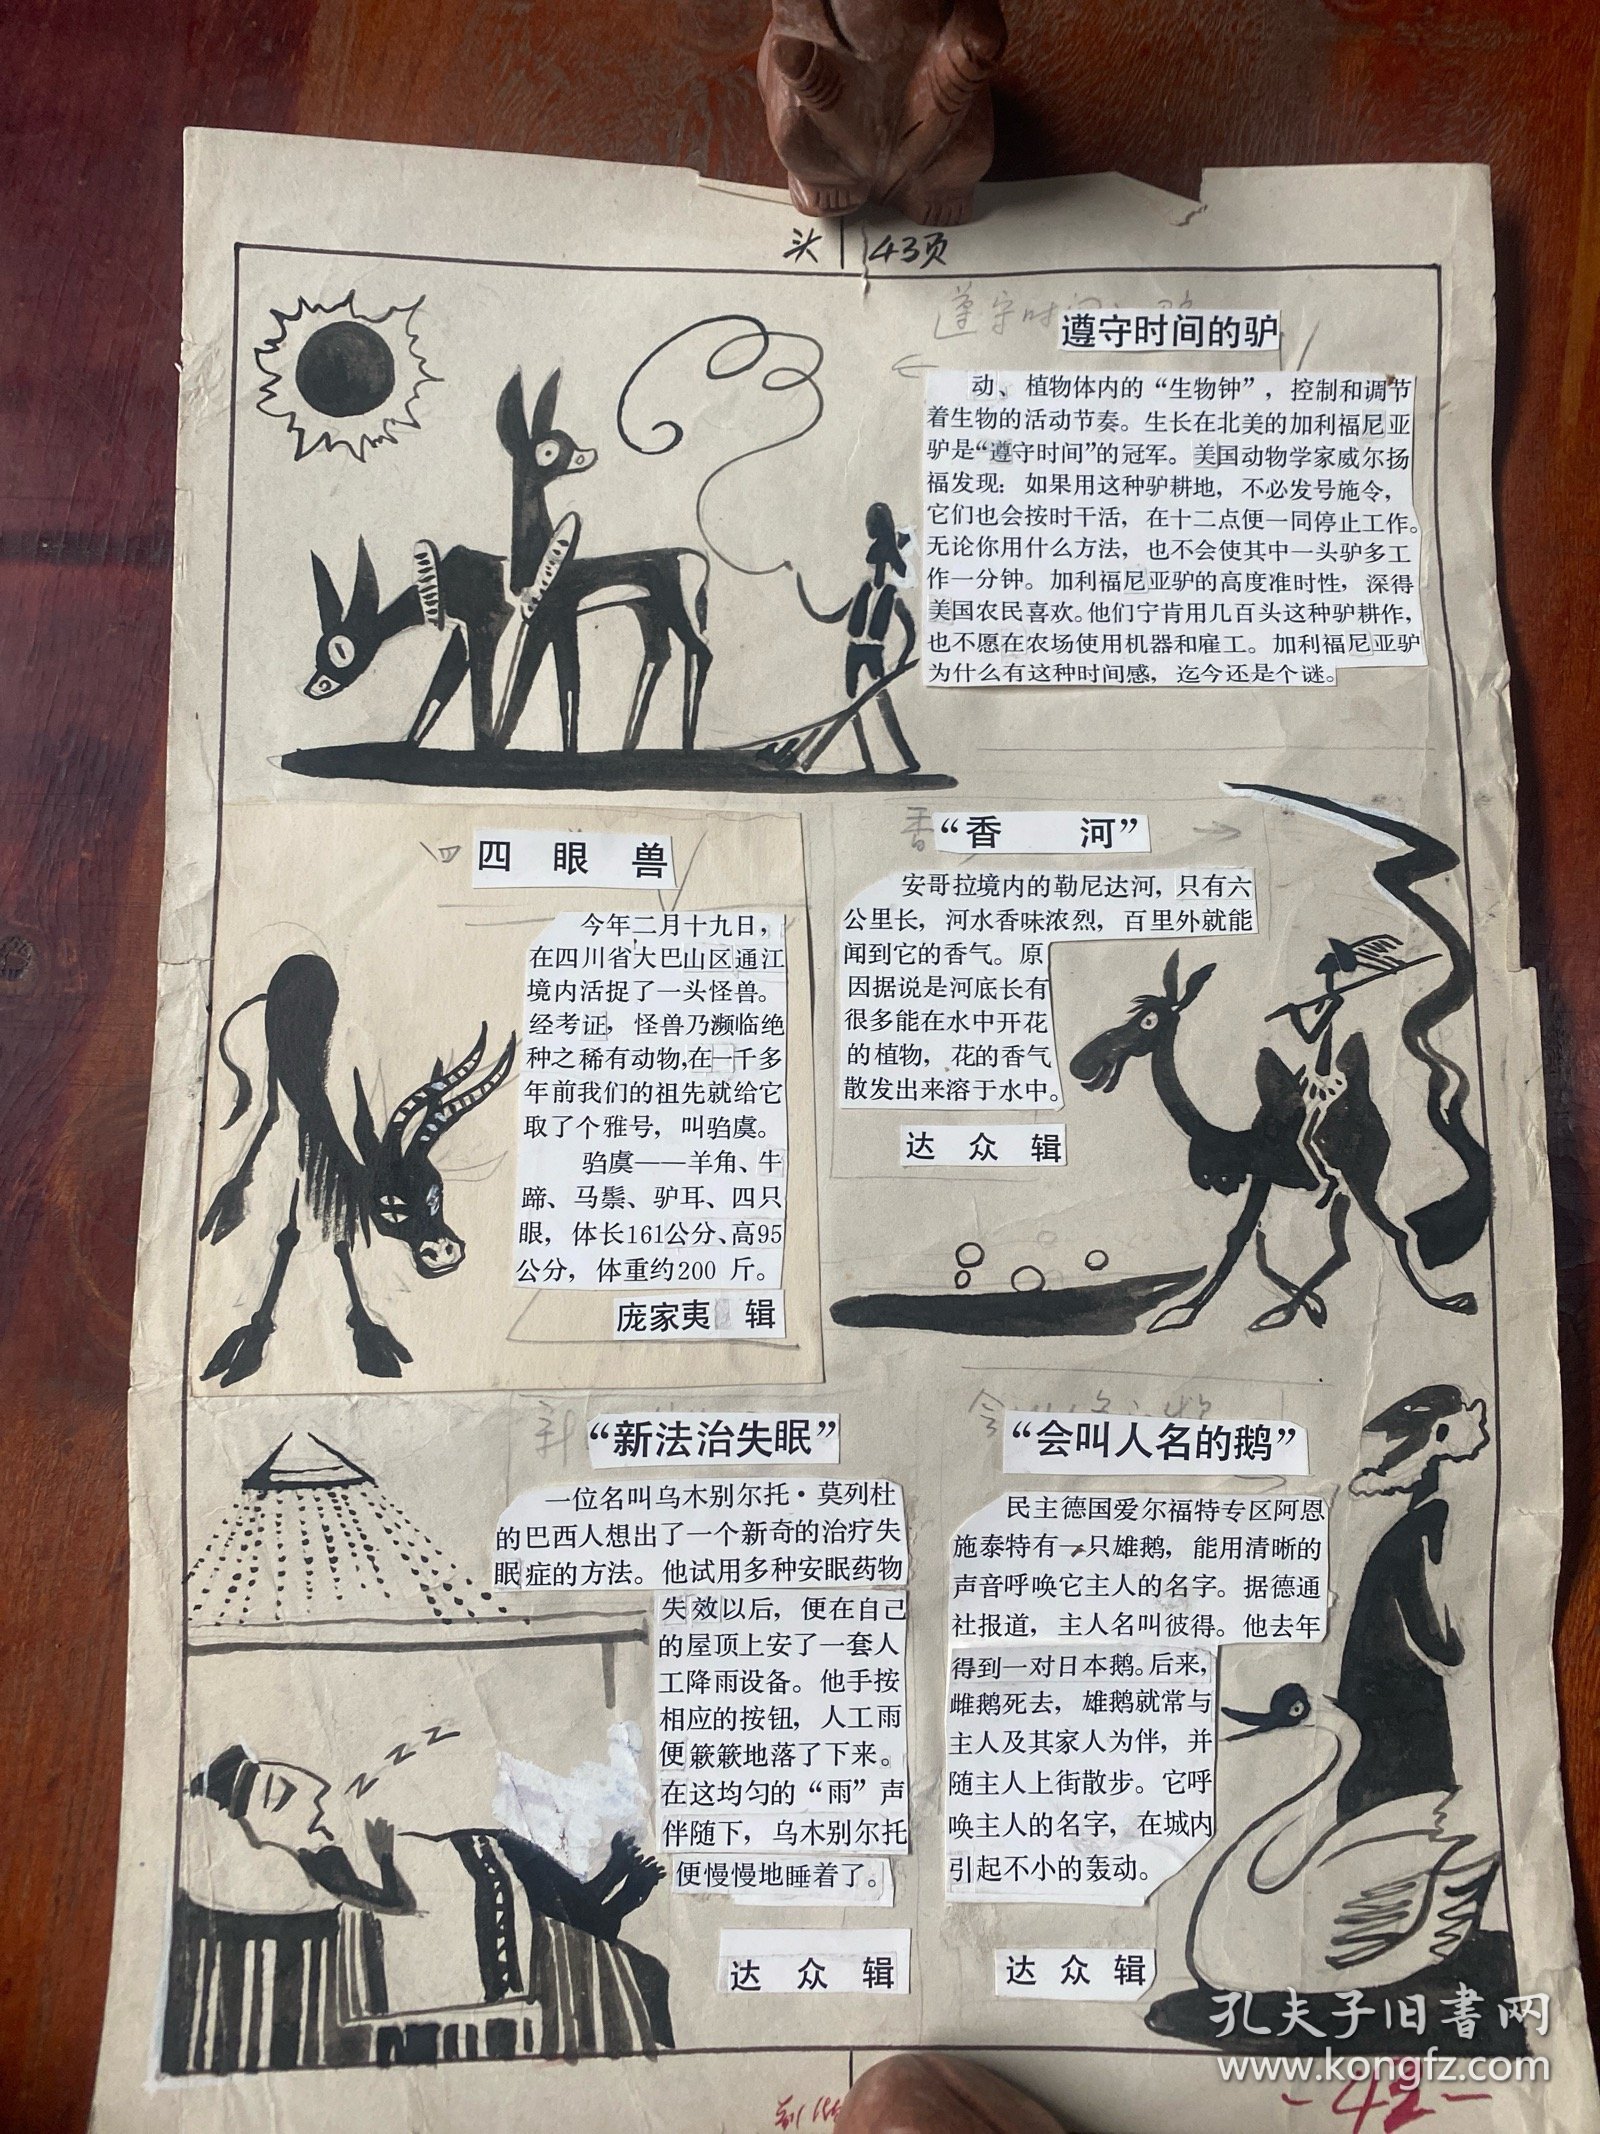 头 43页
遵守时间的驴
动、植物体内的“生物钟”，控制和调节
着生物的活动节奏。生长在北美的加利福尼亚
驴是“遵守时间”的冠军。美国动物学家威尔扬
福发现：如果用这种驴耕地，不必发号施令，
它们也会按时干活，在十二点便一同停止工作。
无论你用什么方法，也不会使其中一头驴多工
作一分钟。加利福尼亚驴的高度准时性，深得
美国农民喜欢。他们宁肯用几百头这种驴耕作，
也不愿在农场使用机器和雇工。加利福尼亚驴
为什么有这种时间感，迄今还是个谜。
四眼兽
今年二月十九日，
在四川省大巴山区通江
境内活捉了一头怪兽。
经考证，怪兽乃濒临绝
种之稀有动物，在一千多
年前我们的祖先就给它
取了个雅号，叫驺虞。
驺虞——羊角、牛
蹄、马鬃、驴耳、四只
眼，体长161公分、高95
公分，体重约200斤。
庞家夷 辑
“香河”
安哥拉境内的勒尼达河，只有六
公里长，河水香味浓烈，百里外就能
闻到它的香气。原
因据说是河底长有
很多能在水中开花
的植物，花的香气
散发出来溶于水中。
达众辑
“新法治失眠”
一位名叫乌木别尔托·莫列杜
的巴西人想出了一个新奇的治疗失
眠症的方法。他试用多种安眠药物
失效以后，便在自己
的屋顶上安了一套人
工降雨设备。他手按
相应的按钮，人工雨
便簌簌地落了下来。
在这均匀的“雨”声
伴随下，乌木别尔托
便慢慢地睡着了。
达众辑
“会叫人名的鹅”
民主德国爱尔福特专区阿恩
施泰特有一只雄鹅，能用清晰的
声音呼唤它主人的名字。据德通
社报道，主人名叫彼得。他去年
得到一对日本鹅。后来，
雌鹅死去，雄鹅就常与
主人及其家人为伴，并
随主人上街散步。它呼
唤主人的名字，在城内
引起不小的轰动。
达众辑
zzzz
孔夫子旧书网
www.kongfz.com
-42-